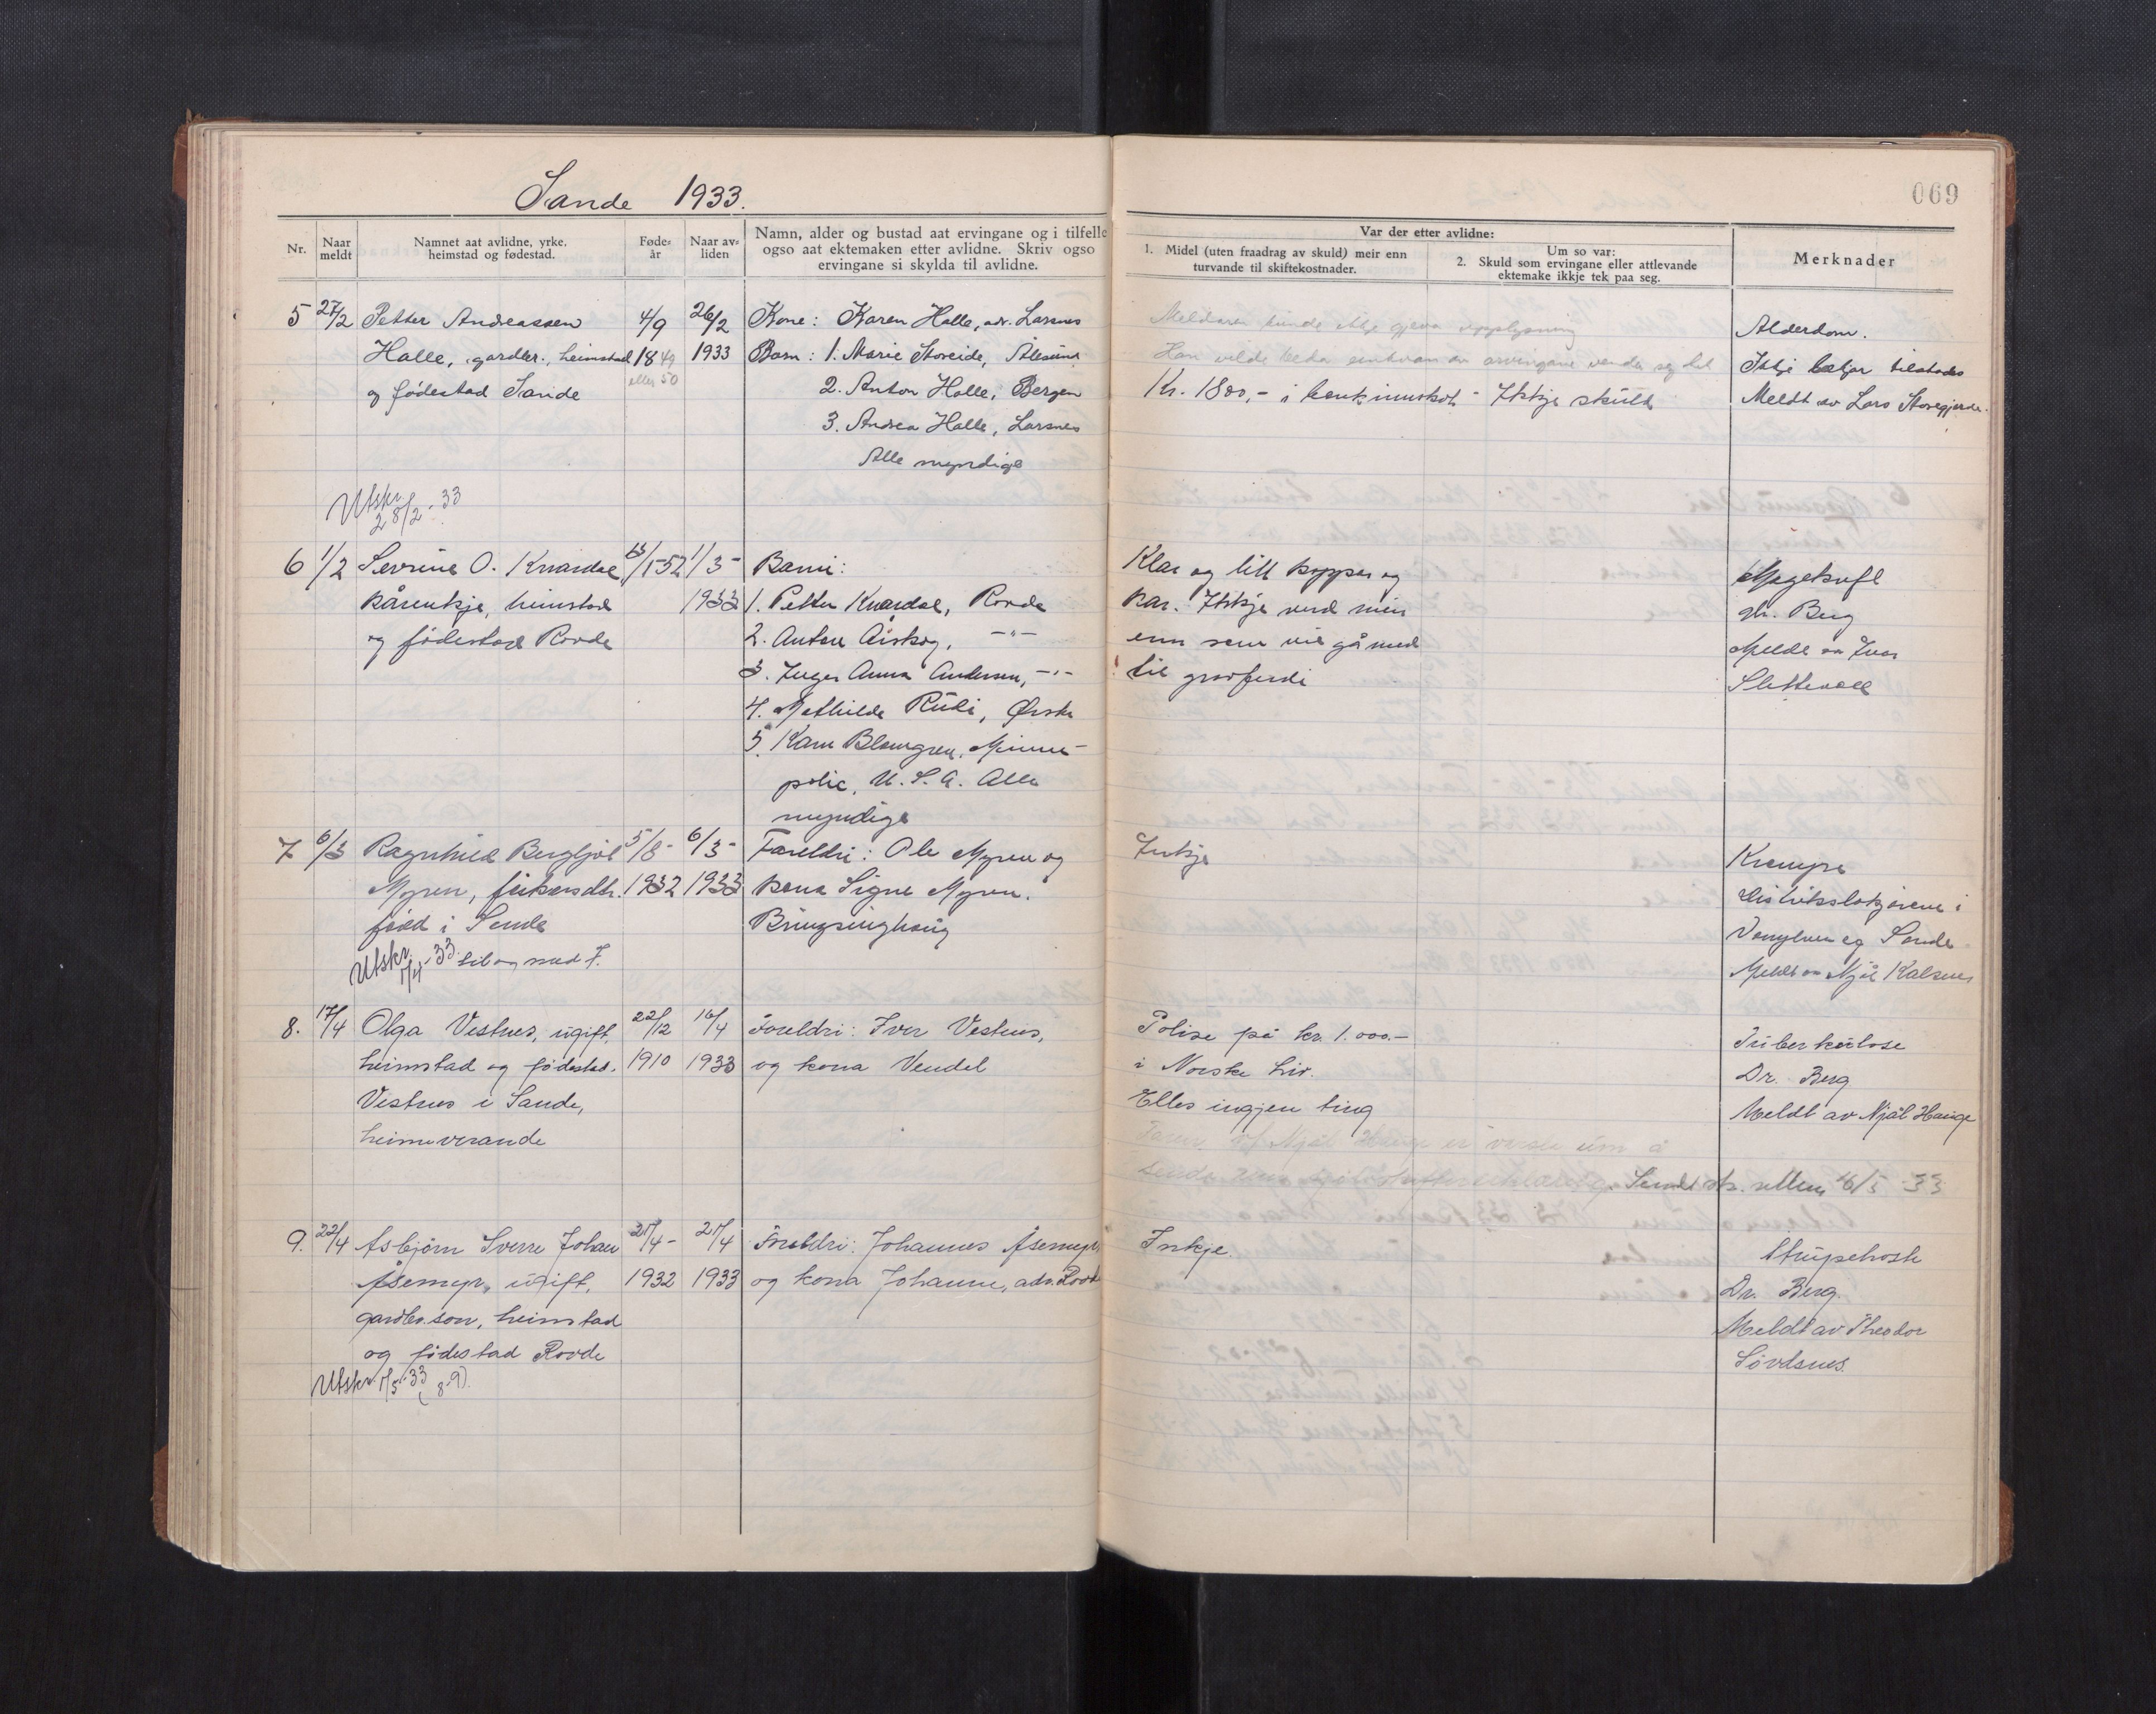 Sande 1933.
069
Nr.
Naar meldt
Namnet aat avlidne, yrke.
heimstad og fødestad.
Føde-
år
Naar av-
liden
Namn, alder og bustad aat ervingane og i tilfelle
ogso aat ektemaken etter avlidne. Skriv ogso
ervingane si skylda til avlidne.
Var der etter avlidne:
1. Midel (uten fraadrag av skuld) meir enn
turvande til skiftekostnader.
Um so var:
2. Skuld som ervingane eller attlevande
ektemake ikkje tek paa seg.
Merknader
5 27/2 Petter Andreassen 4/9 26/2 Kone: Karen Halle, adr. Larsnes
Halle, gardbr., heimstad 1849 1933 Born: 1. Marie Storeide, Ålesund
og fødestad Sande eller 50 2. Anton Halle, Bergen
3. Andrea Halle, Larsnes
Alle myndige
Meldaren kunde ikkje gjeva upplysning
Han vilde beda einkvan av arvingane venda seg hit
Kr. 1800,- i bankinnskot - Ikkje skuld
Alderdom.
Ikkje lækjar tilstades
Meldt av Lars Storegjerde.
Utskr. 28/2-33
6 1/2 Sevrine O. Knardal 1/5-52 1/3-
kårenkje, heimstad 1933
og fødestad Rovde
Barn:
1. Petter Knardal, Rovde
2. Anton Aarskog, -"-
3. Inger Anna Andersen, -"-
4. Mathilde Rudi, Ørsta
5. Karn Blomgren, Minne-
polis, U.S.A. Alle
myndige
Klær og litt kopper og
kar. Ikkje verd meir
enn som vil gå med
til gravferdi
Magekreft
Dr. Berg
Meldt av Ivar
Slettevoll
7 6/3 Ragnhild Bergljot 5/8- 6/3-
Myren, fiskarsdtr. 1932 1933
född i Sande
Foreldri: Ole Myren og
kona Signe Myren.
Bringsinghaug
Inkje
Krampe
Distriktslækjaren i
Vanylven og Sande
Meldt av Njål
Utskr. 1/4-33 til og med 7.
8. 17/4 Olga Vestnes, ugift, 22/12 16/4 Foreldri: Iver Vestnes,
heimstad og födestad. 1910 1933 og kona Vendel
Vestnes i Sande,
heimeverande
Polise på kr. 1.000.-
i Norske Liv.
Elles ingjen ting
Tuberkulose
Dr. Berg
Meldt av Njål Hauge
v/ Njål Hauge er varsla um å
senda
9. 22/4 Asbjörn Sverre Johan 21/4- 21/4 Foreldri: Johannes Åsemyr,
Åsemyr, ugift, 1932 1933 og kona Johanne, adr. Rovde
gardbr.son, heimstad
og födestad Rovde
Inkje.
Strupehoste
Dr. Berg.
Meldt av Theodor
Sövdsnes.
Utskr. 1/5-33 (8-9).